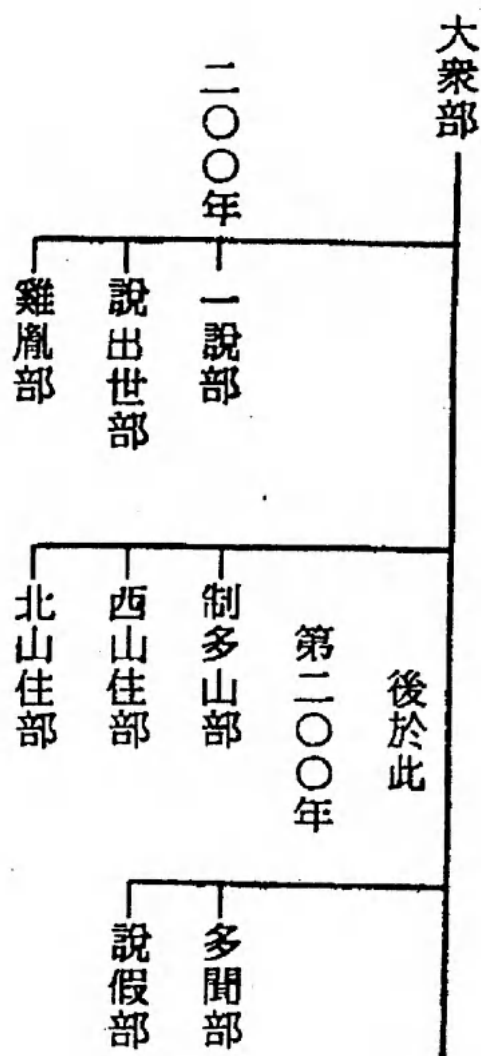 大衆部
二〇〇年
一說部
說出世部
雞胤部
後於此
第二〇〇年
制多山部
西山住部
北山住部
多聞部
說假部